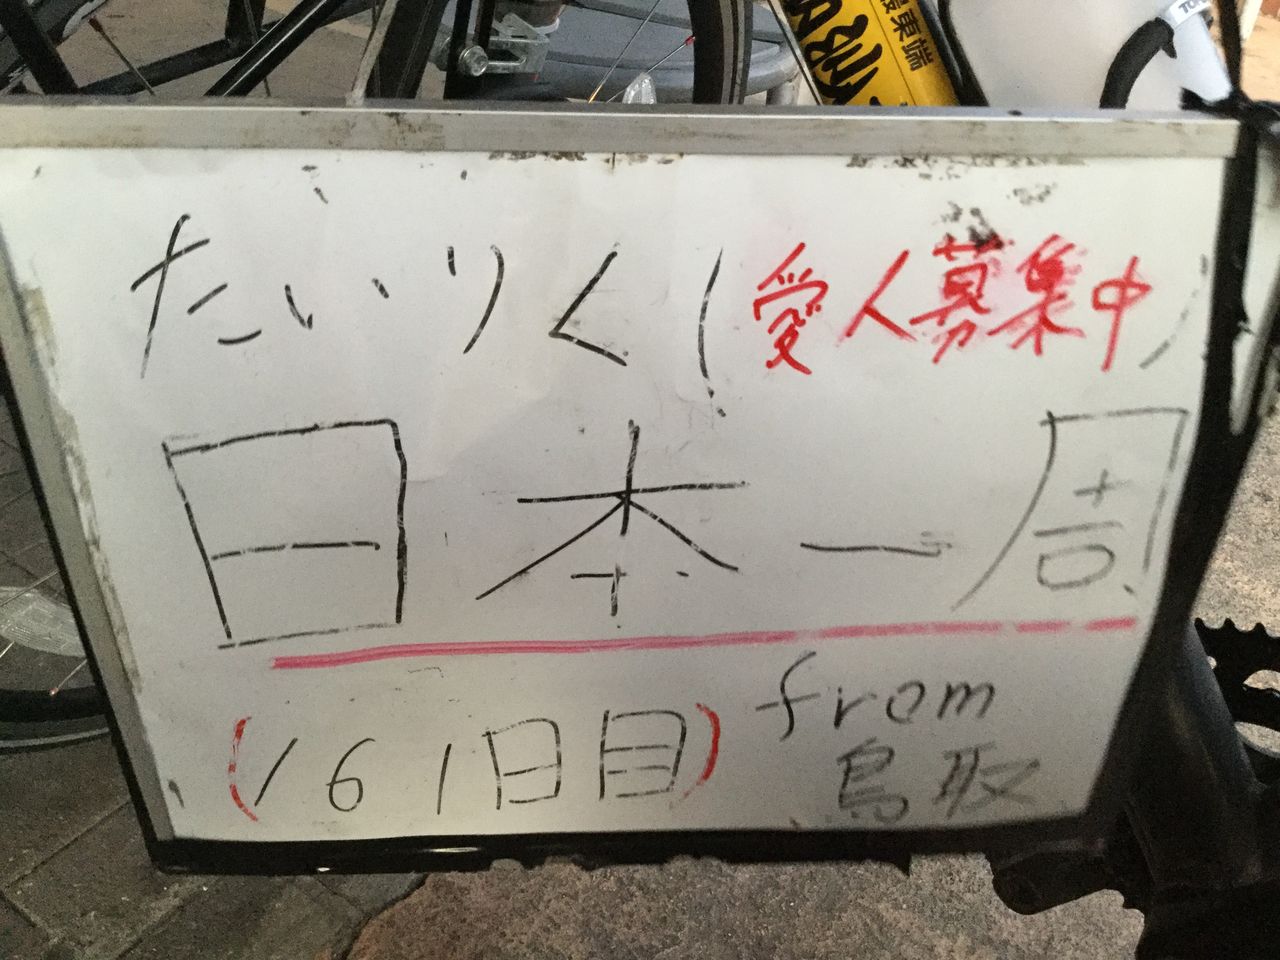 最東端
たいりく(愛人募集中)
日本一周
(161日目) from
鳥取